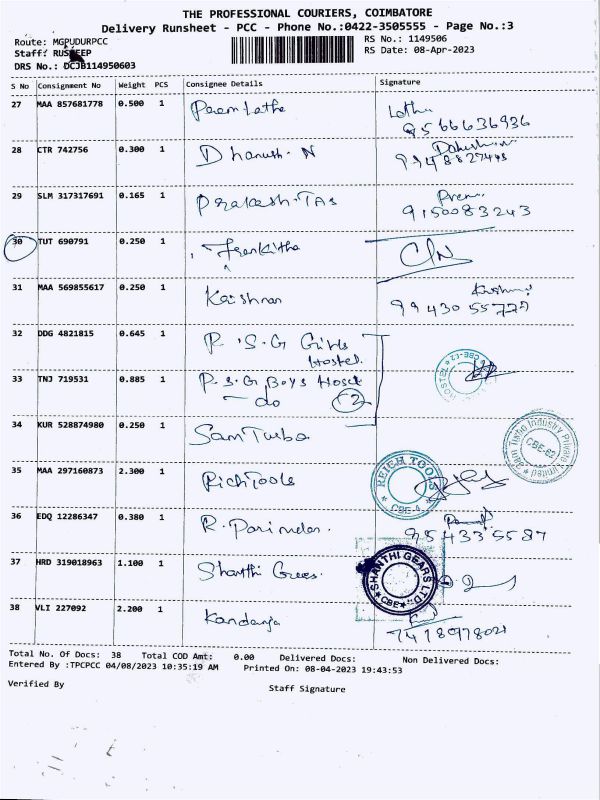 THE PROFESSIONAL COURIERS, COIMBATORE
Delivery Runsheet - PCC - Phone No.:0422-3505555 - Page No.:3
Route: MGPUDURPCC
RS No.: 1149506
Staff: RUSTEEP
RS Date: 08-Apr-2023
DRS No.: DCJB114950603
S No Consignment No Weight PCS Consignee Details Signature
27 MAA 857681778 0.500 1 PremLatha Latha
9566636936
28 CTR 742756 0.300 1 Dhanush. N
29 SLM 317317691 0.165 1 Prakash. TAS Prem
9150083243
30 TUT 690791 0.250 1 C/N
31 MAA 569855617 0.250 1 Krishnan
9943055727
32 DDG 4821815 0.645 1 P.S.G Girls
Hostel
33 TNJ 719531 0.885 1 P.S.G Boys Hostel
do 2
34 KUR 528874980 0.250 1 Sam Turbo
Sam Turbo Industry Private Limited
CBE-62
35 MAA 297160873 2.300 1 Rich Tools
REICH TOOLS
CBE-4
36 EDQ 12286347 0.380 1
9543355587
37 HRD 319018963 1.100 1 Shanthi Gears
SHANTHI GEARS LTD
CBE
38 VLI 227092 2.200 1
Total No. Of Docs: 38 Total COD Amt: 0.00 Delivered Docs: Non Delivered Docs:
Entered By :TPCPCC 04/08/2023 10:35:19 AM Printed On: 08-04-2023 19:43:53
Verified By
Staff Signature